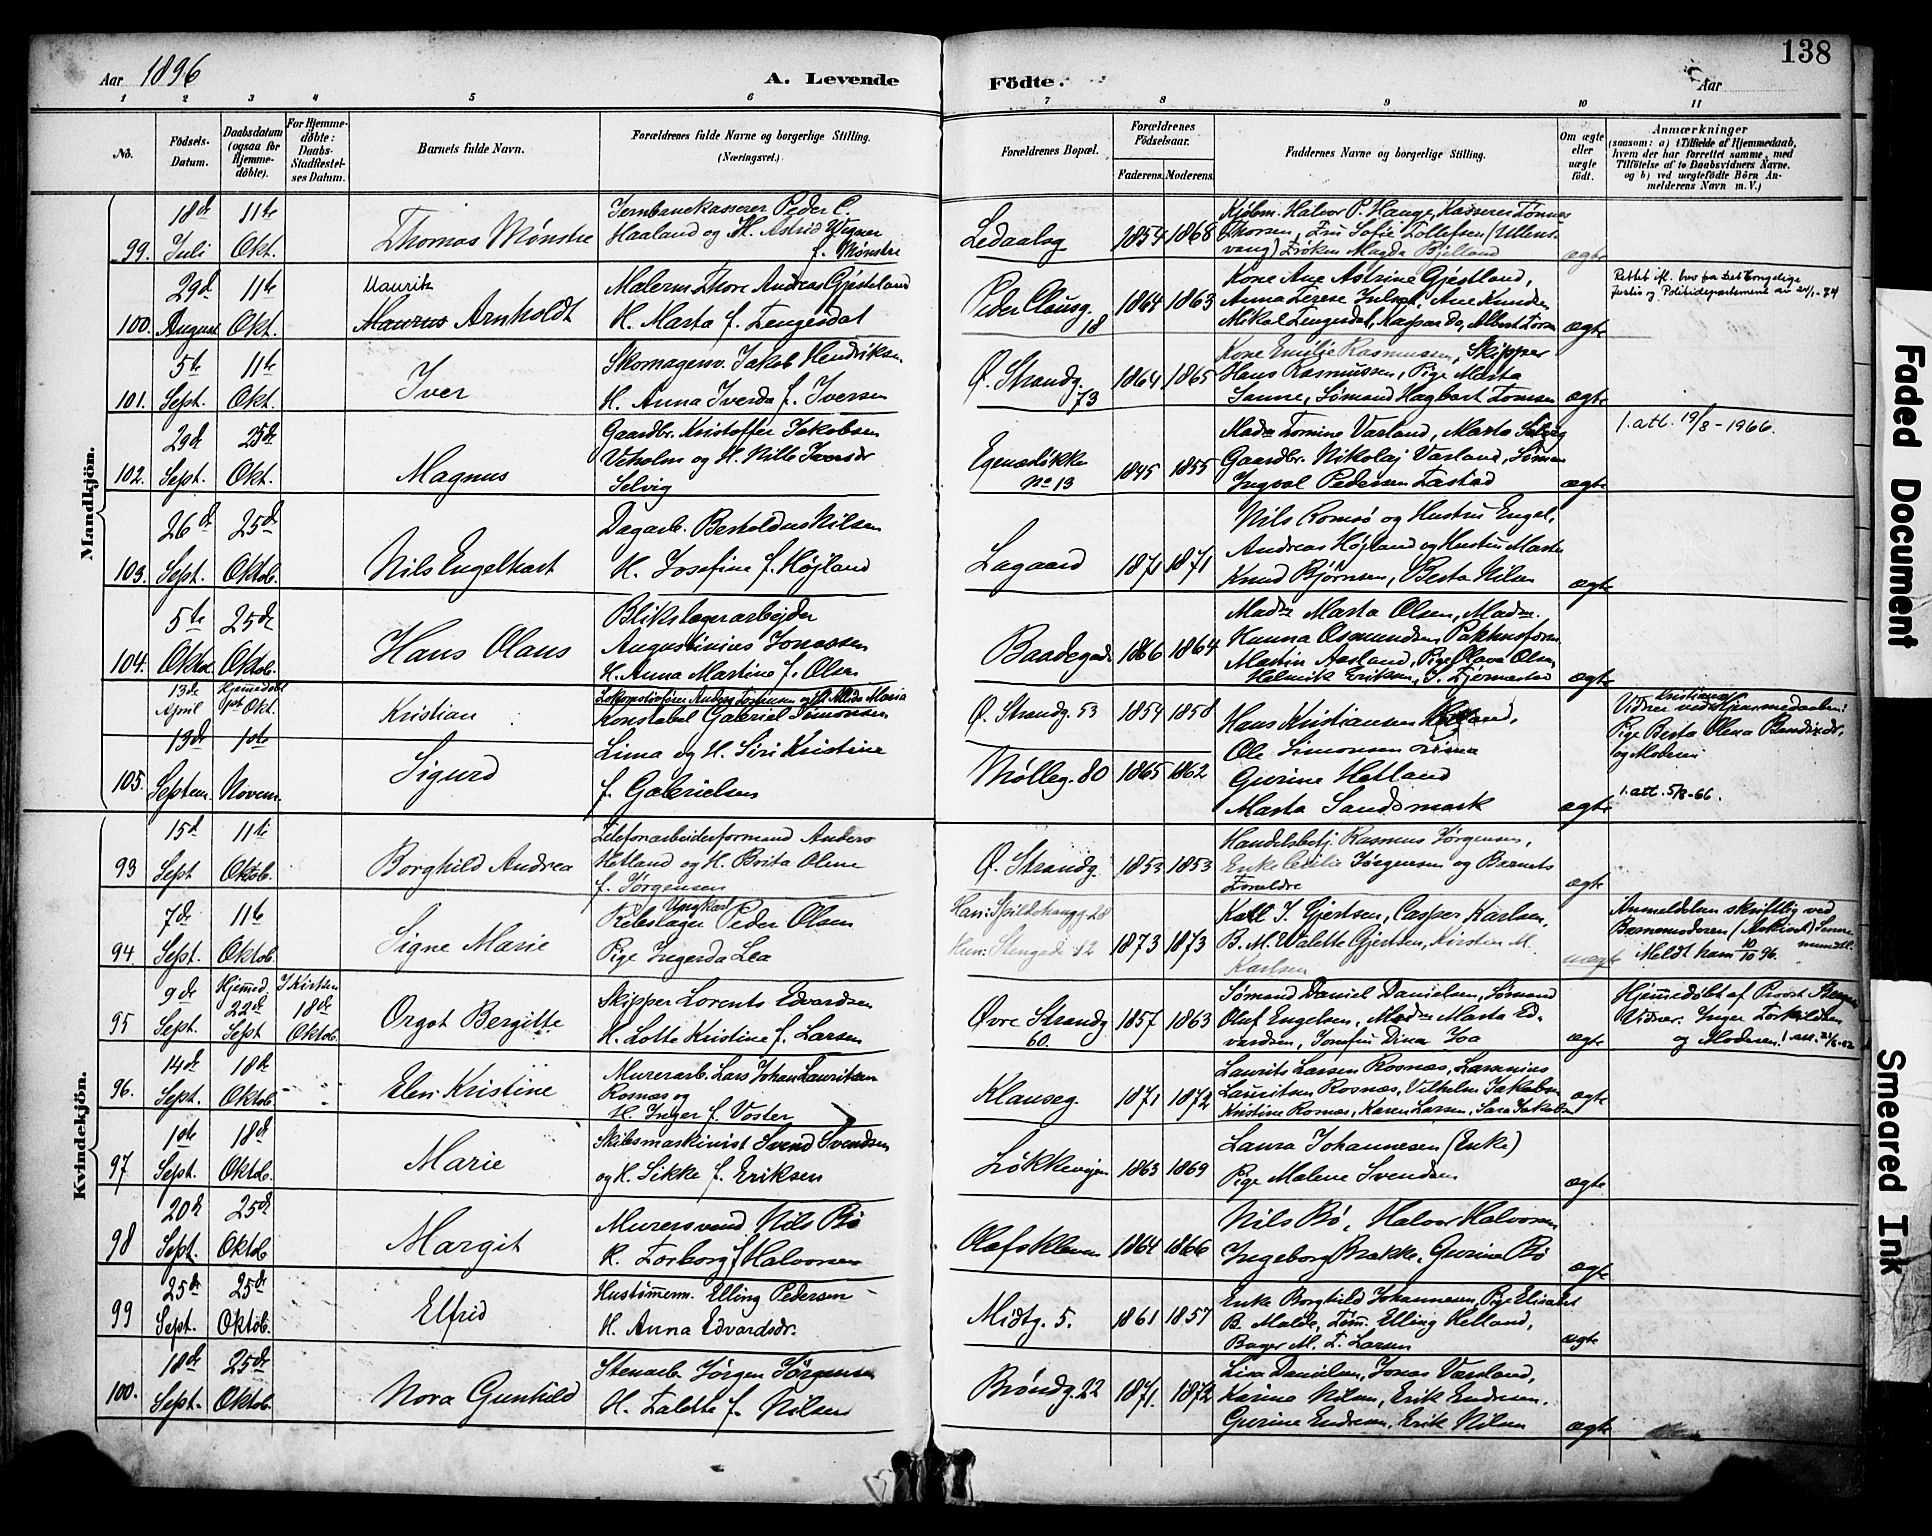 138
Aar 1896
A. Levende Fødte.
Aar
1 2 3 4 5 6 7 8 9 10 11
No.
Födsels-Datum.
Daabsdatum (ogsaa för Hjemmedöbte).
For Hjemmedöbte: Daabs-Stadfæstelses Datum.
Barnets fulde Navn.
Forældrenes fulde Navne og borgerlige Stilling. (Næringsvei.)
Forældrenes Bopæl.
Forældrenes Födselsaar.
Faderens. Moderens.
Faddernes Navne og borgerlige Stilling.
Om ægte eller uægte födt.
Anmærkninger
(saasom: a) i Tilfælde af Hjemmedaab, hvem der har forrettet samme, med Tilföielse af to Daabsvidners Navne. og b) ved uægtefödte Börn Anmelderens Navn m. V.)
Mandkjön.
99. 18de Juli 11te Okt. Thomas Mønstre
Jernbanekasserer Peder C.
Haaland og H. Astrid Wigner
f. Mønstre
Ledaalsg 1854 1868
Kjøbm. Halvor P. Hauge, Kasserer Tønnes
Thorsen, Fru Sofie Tollefsen (Ullensvang) Frøken Magda Bjelland
ægte
100. 29de August 11te Okt. Mauritz
Maurus Arnholdt
Malerm. Thore Andreas Gjesteland
H. Marta f. Tengesdal
Peder Clausg. 18 1864 1863
Kone Ane Astrine Gjestland,
Mikal Tengesdal, Kaspar Do, Albert
ægte
101. 5te Sept. 11te Okt. Iver
Skomagersv. Jakob Hendriksen
H. Anna Iverda f. Iversen
Ø. Strandg. 73 1864 1865
Kone Emilie Rasmussen, Skipper
Hans Rasmussen, Pige Marta
Sanne, Sømand Hagbart Tomsen
ægte
102. 29de Sept. 25de Okt. Magnus
Gaardbr. Kristoffer Jakobsen
Veholm og H. Nille Iversdr
Selvig
Egenæsløkke No 13 1845 1855
Madm Tomine Varland, Marta Selvig
Gaardbr. Nikolaj Varland, Sømand
Ingval Pedersen Tastad
ægte
1. att. 19/8-1966.
103. 26de Sept. 25de Oktob. Nils Engelhart
Dagarb. Bertholdus Nilsen
H. Josefine f. Højland
Lagaard 1871 1871
Nils Romsø og Hustru Engel,
Andreas Højland og Hustru Marta
Knud Bjørnsen, Berta Nilsen
ægte
104. 5te Oktob. 25de Oktob. Hans Olaus
Blikslagerarbejder
Augustinius Jonassen
H. Anna Martine f. Olsen
Baadegade 1866 1864
Madm Marta Olsen, Madm.
Hanna Osmundsen, Pakhusform.
Martin Aasland, Pige Olava Olsen
Helmik Eriksen,
ægte
13de April Hjemmedøbt Okt. Kristian
Konstabel Gabriel Simonsen
Ø. Strandg. 53 1854 1858
105. 13de Septem. 1ste Novem. Sigurd
Lima og H. Siri Kristine
f. Gabrielsen
Mølleg. 80 1865 1862
Hans Kristiansen Hetland,
Ole Simonsen Lima
Gurine Hetland
Marta Sandsmark
ægte
Pige Berta Olena
og Moderen
1. att. 5/8-66.
Kvindekjön.
93 15d Sept 11te Oktob. Borghild Andrea
Telefonarbeiderformand Anders
Hetland og H. Brita Oline
f. Jørgensen
Ø. Strandg. 1853 1853
Handelsbetj. Rasmus Jørgensen,
Enke Cecilie Jørgensen og Barnets
Forældre
ægte
94 7de Sept. 11te Oktob. Signe Marie
Ungkarl
Rebslager Peder Olsen
Pige Ingerda Lea
Han: Spilderhaugg. 28
Hun: Stengade 12 1873 1873
Karl J. Gjertsen, Casper Karlsen,
B. M. Valette Gjertsen, Kirstin M.
Karlsen
uægte
Anmeldelsen skriftlig ved
Meldt ham 10/10 96.
95 9de Sept. Hjemmed. 22de Sept I Kirken 18de Oktob. Orgot Bergitte
Skipper Lorents Edvardsen
H. Lotte Kristine f. Larsen
Øvre Strandg 60. 1857 1863
Sømand Daniel Danielsen, Sømand
Oluf Engelsen, Madm Marta Edvardsen, Josefine Dina Joa
ægte
Hjemmedøbt af Provst
Vidner: Inger Torkildsen
og Moderen.
96. 14de Sept. 18de Oktob. Elen Kristine
Murerarb. Lars Johan Lauritsen
Rosnæs og
H. Inger f. Voster
Klauseg. 1871 1872
Laurits Larsen Rosnæs, Larsinius
Lauritsen Rosnæs, Vilhelm Jakobsen
Kristine Rosnæs, Karen Larsen, Sara Jakobsen
ægte
97 1ste Sept. 18de Oktob. Marie
Skibsmaskinist Svend Svendsen
og H. Sikke f. Eriksen
Løkkevejen 1863 1869
Laura Johannesen (Enke)
Pige Malene Svendsen
ægte
98 20de Sept. 25de Oktob Margit
Murersvend Nils Bø
H. Torborg f Halvorsen
Olafskleven 1864 1866
Nils Bø, Halvor Halvorsen
Ingeborg Brække, Gurine Bø
ægte
99 25de Sept. 25de Oktob. Elfrid
Hustømmerm. Elling Pedersen
H. Anna Edvardsdr.
Midtg. 5. 1861 1857
Enke Borghild Johannesen, Pige Elisabet
B. Malde, Tøm. Elling Hetland,
Bager M. T. Larsen
ægte
100. 18de Sept. 25de Oktob. Nora Gunhild
Stenarb. Jørgen Jørgensen
H. Talette f. Nilsen
Brøndg. 22 1871. 1872
Lisa Danielsen, Jonas Varland,
Karina Nilsen, Erik Endresen,
Gurine Endresen, Erik Nilsen
ægte
Faded Document
Smeared Ink